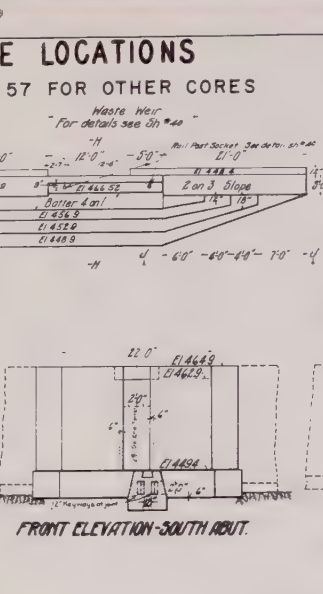 E LOCATIONS
57 FOR OTHER CORES
Waste Weir
For details see Sh #40
-H
Rail Post Socket See detail sh #40
12'-0"
5'-0"
21'-0"
8"
El 466.52
2 on 3 Slope
Batter 4 on 1
12"
18"
El 456.9
El 452.9
El 448.9
-H
6'-0" 4'-0" 4'-0" 7'-0"
22'-0"
El 464.9
El 462.9
2'-0"
6"
6"
El 449.4
6"
12" Keyways at joint
FRONT ELEVATION-SOUTH ABUT.